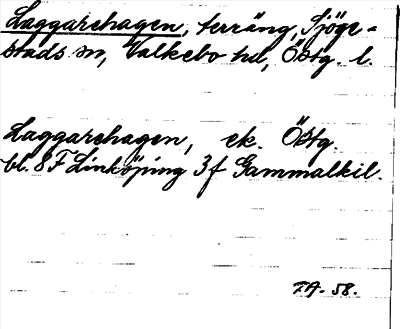 Laggarehagen, terräng, Sjöge-
stads sn, Valkebo hd, Östg. l.
Laggarehagen, ek. Östg.
bl. 8F Linköping 3f Gammalkil.
FA. 58.